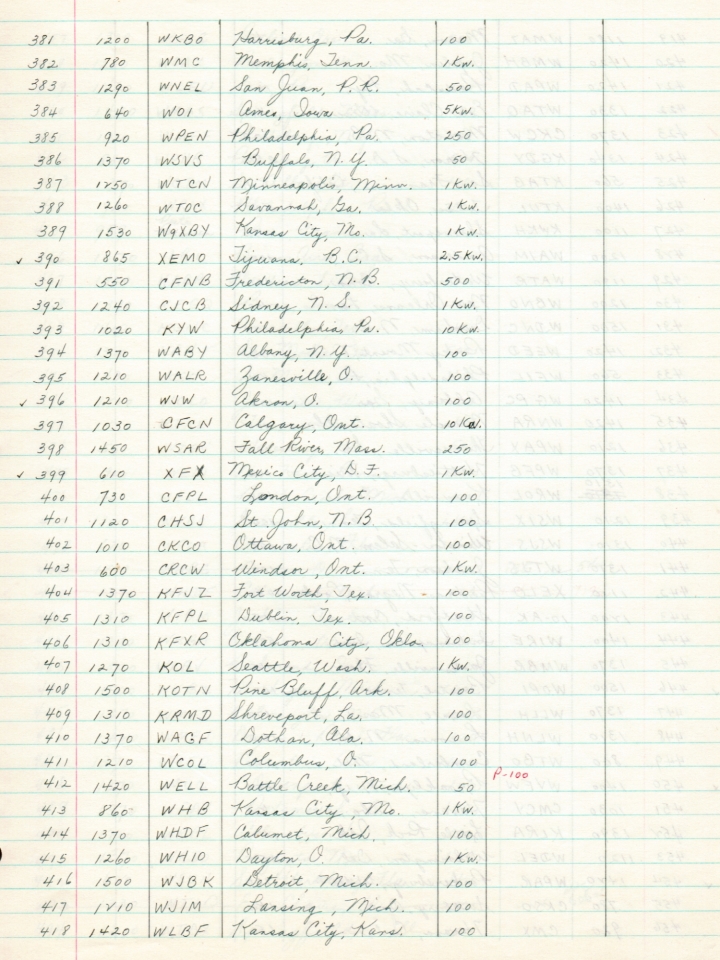 381 1200 WKBO Harrisburg, Pa. 100
382 780 WMC Memphis, Tenn. 1 Kw.
383 1290 WNEL San Juan, P. R. 500
384 640 WOI Ames, Iowa 5 Kw.
385 920 WPEN Philadelphia, Pa. 250
386 1370 WSVS Buffalo, N.Y. 50
387 1250 WTCN Minneapolis, Minn. 1 Kw.
388 1260 WTOC Savannah, Ga. 1 Kw.
389 1530 W9XBY Kansas City, Mo. 1 Kw.
✓ 390 865 XEMO Tijuana. B.C. 2.5 Kw.
391 550 CFNB Fredericton, N.B. 500
392 1240 CJCB Sidney, N.S. 1 Kw.
393 1020 KYW Philadelphia, Pa. 10 Kw.
394 1370 WABY Albany, N.Y. 100
395 1210 WALR Zanesville, O. 100
✓ 396 1210 WJW Akron, O. 100
397 1030 CFCN Calgary, Ont. 10 Kw.
398 1450 WSAR Fall River, Mass. 250
✓ 399 610 XFX Mexico City, D.F. 1 Kw.
400 730 CFPL London, Ont. 100
401 1120 CHSJ St. John, N.B. 100
402 1010 CKCO Ottawa, Ont. 100
403 600 CRCW Windsor, Ont. 1 Kw.
404 1370 KFJZ Fort Worth, Tex. 100
405 1310 KFPL Dublin, Tex. 100
406 1310 KFXR Oklahoma City, Okla. 100
407 1270 KOL Seattle, Wash. 1 Kw.
408 1500 KOTN Pine Bluff, Ark. 100
409 1310 KRMD Shreveport, La. 100
410 1370 WAGF Dothan, Ala. 100
411 1210 WCOL Columbus, O. 100
412 1420 WELL Battle Creek, Mich. 50 P-100
413 860 WHB Kansas City, Mo. 1 Kw.
414 1370 WHDF Calumet, Mich. 100
415 1260 WHIO Dayton, O. 1 Kw.
416 1500 WJBK Detroit, Mich. 100
417 1210 WJIM Lansing, Mich. 100
418 1420 WLBF Kansas City, Kans. 100